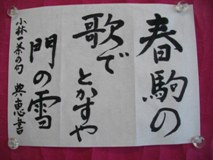 春駒の
歌で
とかすや
門の雪
小林一茶の句 典恵書